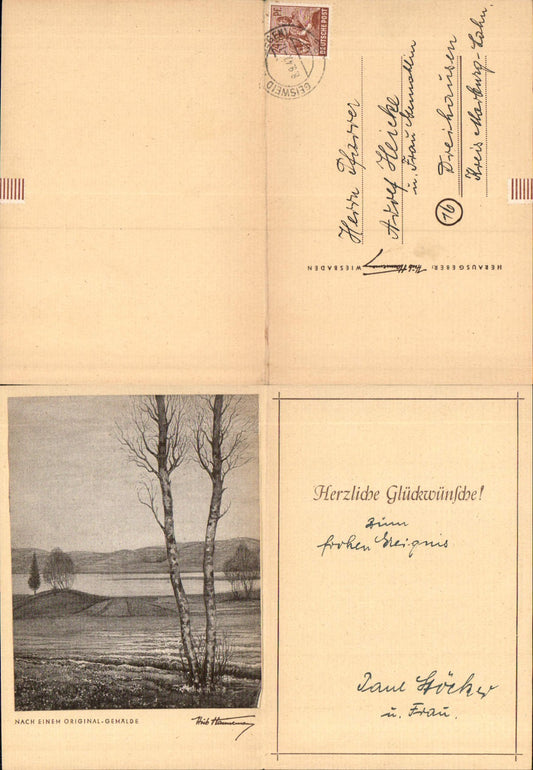 PF.
DEUTSCHE POST
GEISWEID
Herrn Pfarrer
Adolf
u. Frau Gemahlin
(16)
Dreihausen
Kreis Marburg-Lahn.
HERAUSGEBER: WIESBADEN
Herzliche Glückwünsche!
zum
frohen Ereignis
Paul Stöcker
u. Frau.
NACH EINEM ORIGINAL-GEMÄLDE